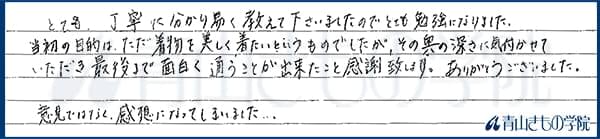 とても、丁寧に分かり易く教えて下さいましたのでとても勉強になりました。
当初の目的は、ただ着物を美しく着たいというものでしたが、その奥の深さに気付かせて
いただき最後まで面白く通うことが出来たこと感謝致します。ありがとうございました。
意見ではなく、感想になってしまいました…
青山きもの学院
青山きもの学院